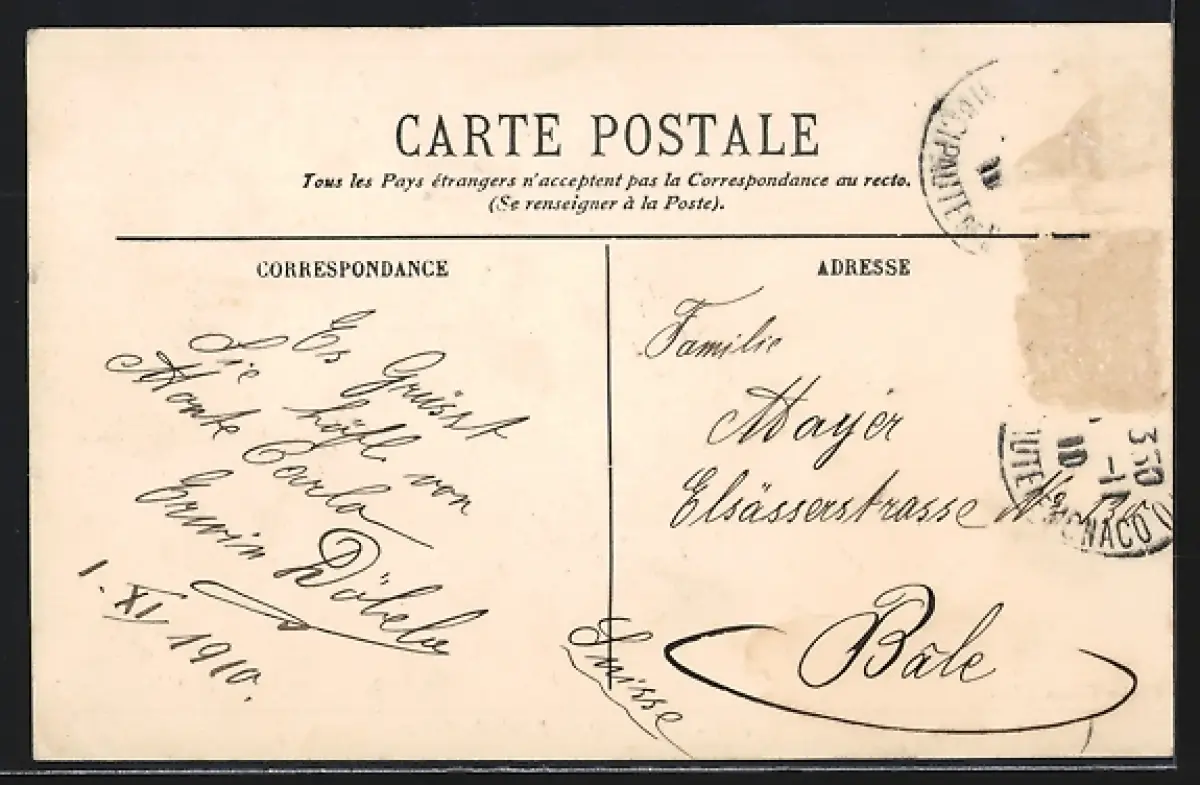 CARTE POSTALE
Tous les Pays étrangers n'acceptent pas la Correspondance au recto.
(Se renseigner à la Poste).
CORRESPONDANCE
Es Grüsst
Sie höfl. von
Monte Carlo
Erwin Döbele
1. XI 1910.
ADRESSE
Familie
Mayer
Elsässerstrasse No
Bâle
Suisse
10
330
10
MONACO